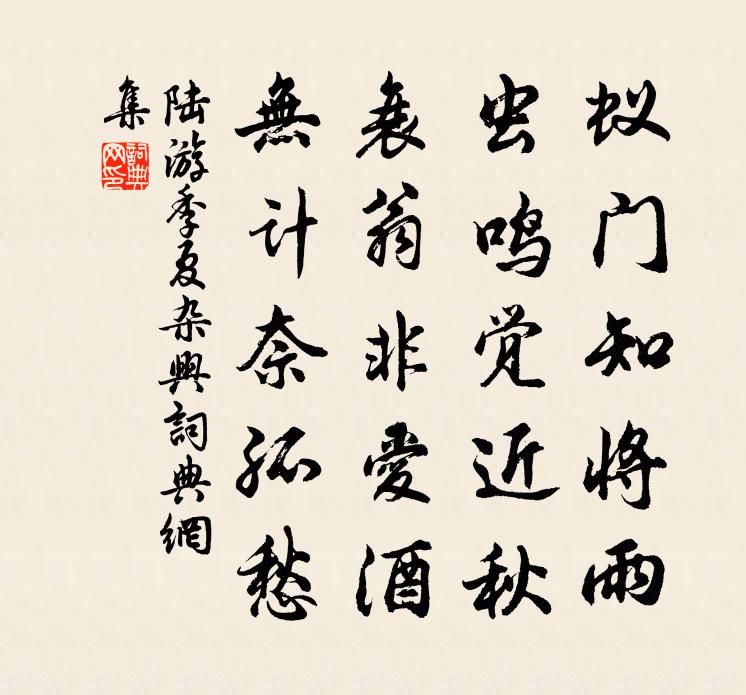 蚁门知将雨
虫鸣觉近秋
衰翁非愛酒
無计奈孤愁
陆游季夏杂興詞典網
集
詞典
网印